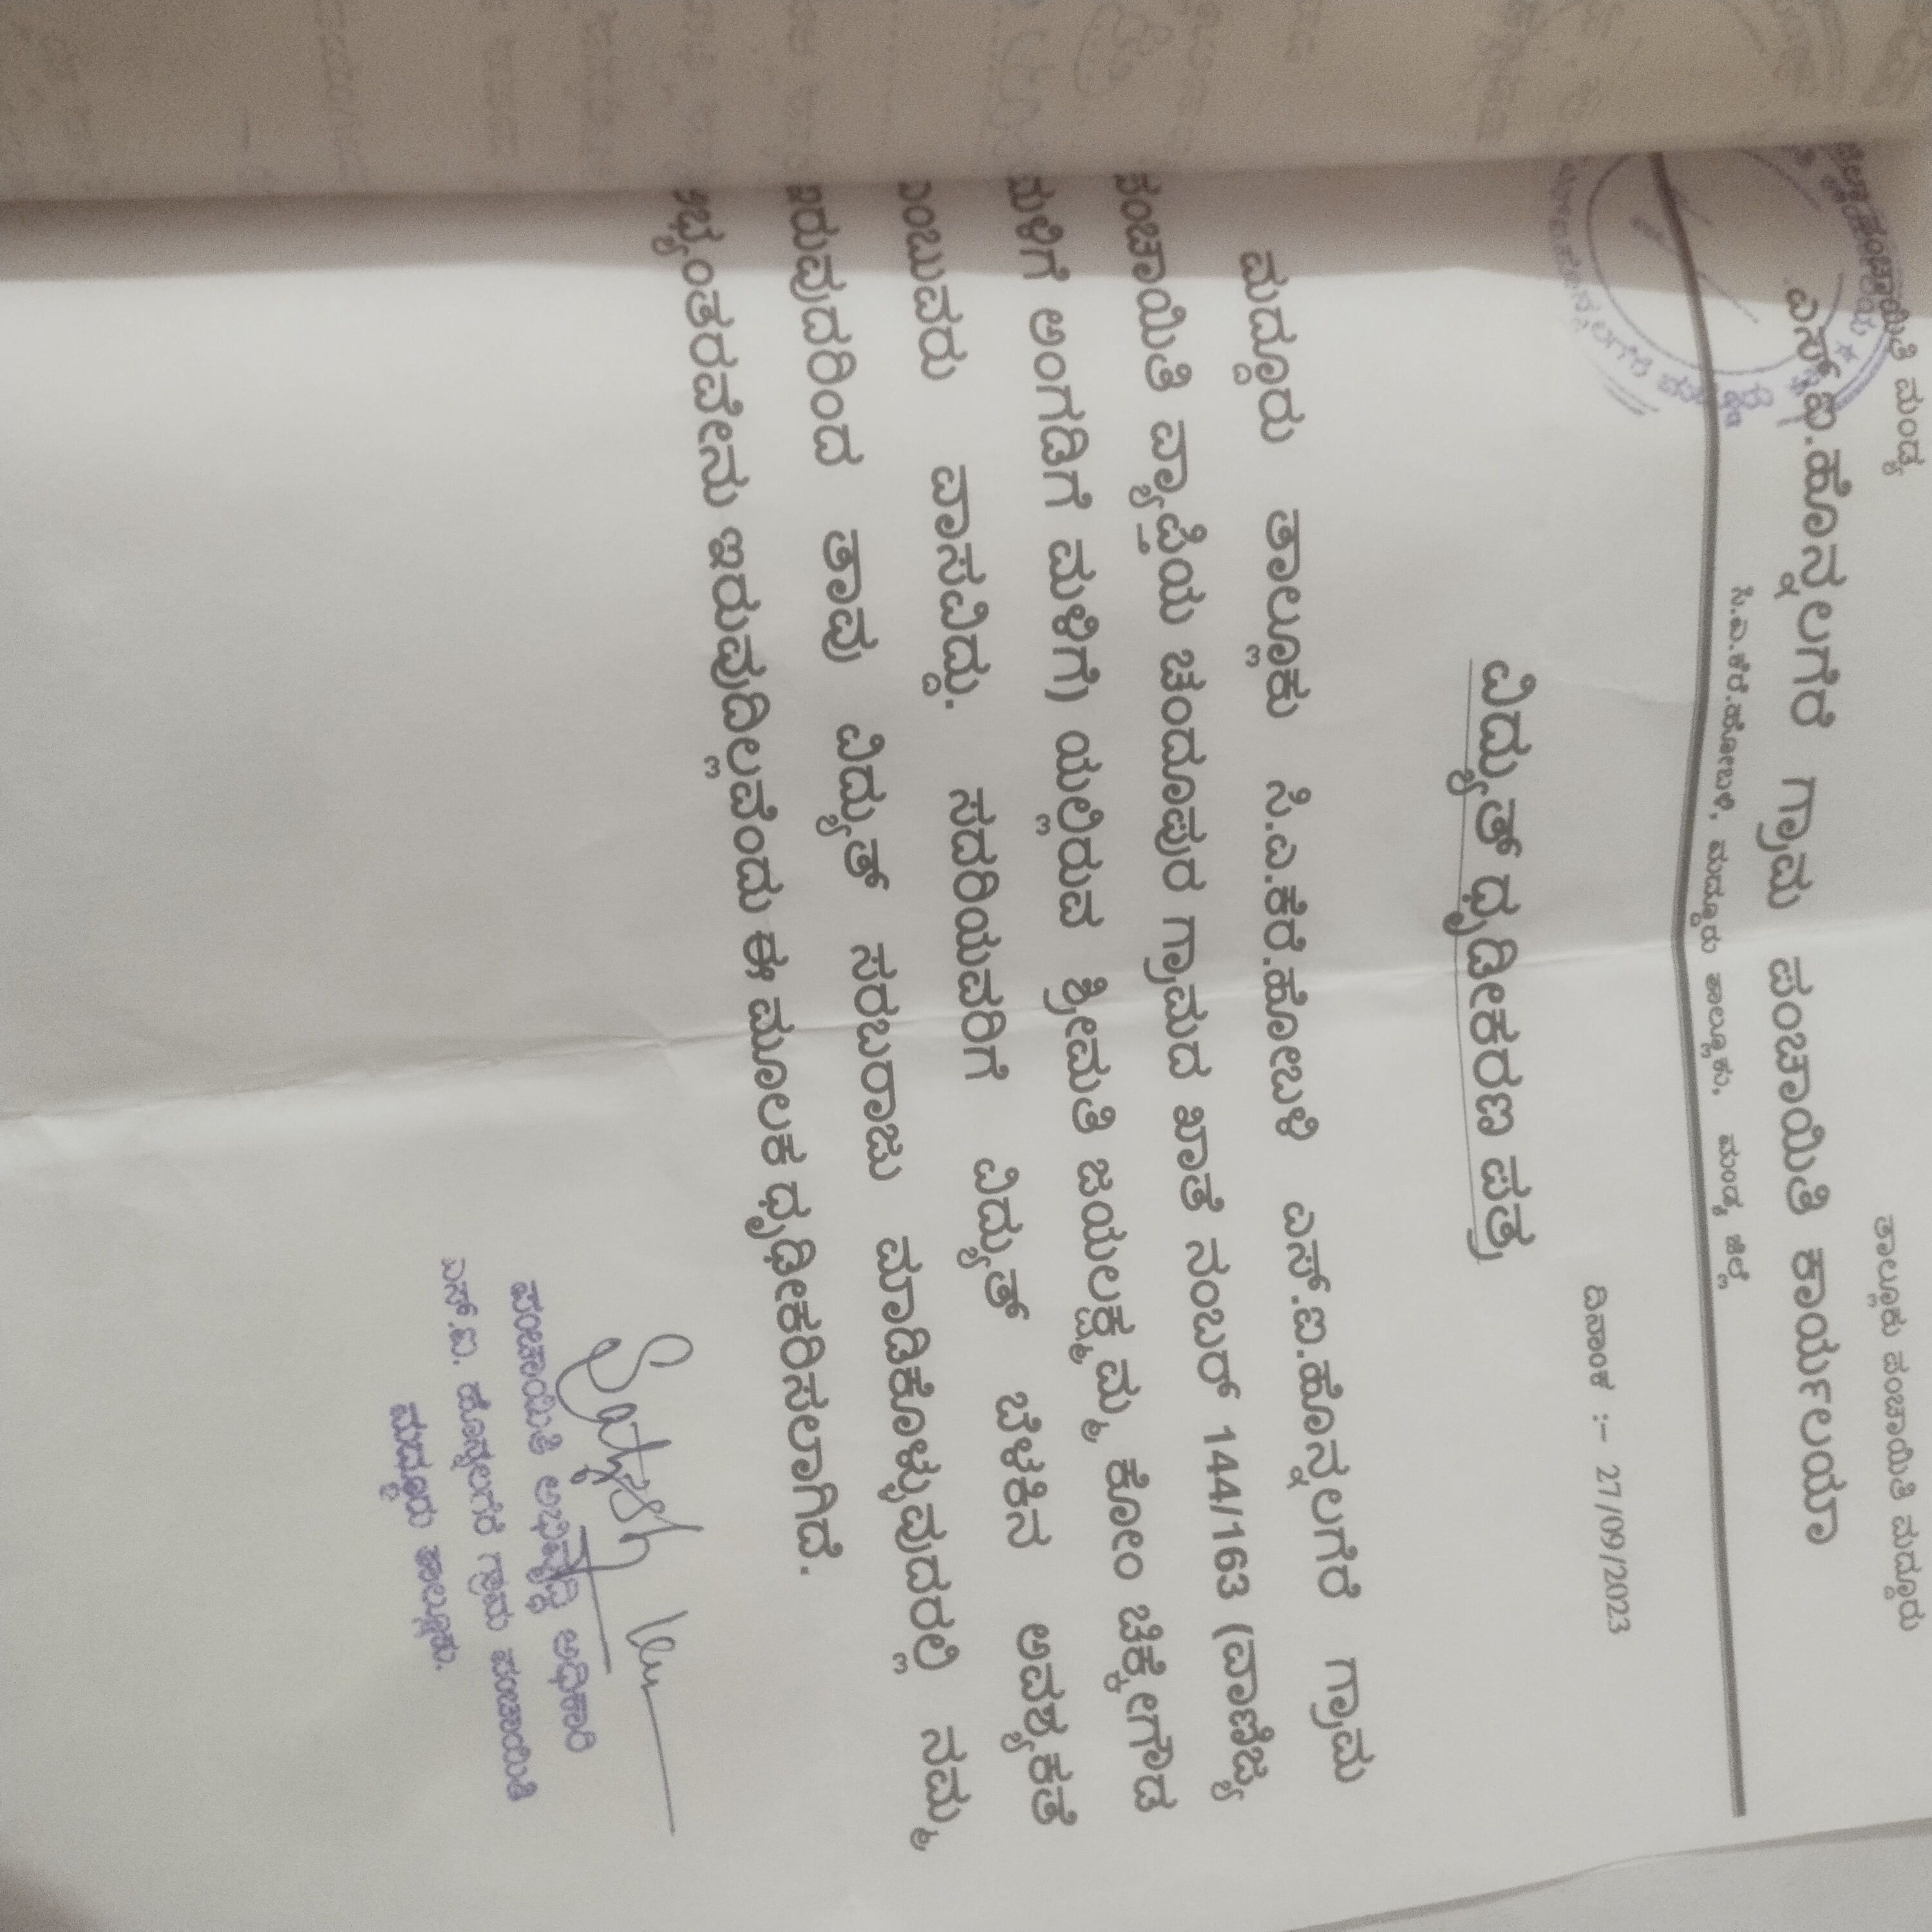 ಜಿಲ್ಲಾ ಪಂಚಾಯಿತಿ ಮಂಡ್ಯ ತಾಲ್ಲೂಕು ಪಂಚಾಯಿತಿ ಮದ್ದೂರು
ಎಸ್.ಐ.ಹೊನ್ನಲಗೆರೆ ಗ್ರಾಮ ಪಂಚಾಯಿತಿ ಕಾರ್ಯಾಲಯ
ಸಿ.ಎ.ಕೆರೆ.ಹೋಬಳಿ, ಮದ್ದೂರು ತಾಲ್ಲೂಕು, ಮಂಡ್ಯ ಜಿಲ್ಲೆ
ದಿನಾಂಕ :– 27/09/2023
ವಿದ್ಯುತ್ ಧೃಡೀಕರಣ ಪತ್ರ
ಮದ್ದೂರು ತಾಲ್ಲೂಕು ಸಿ.ಎ.ಕೆರೆ.ಹೋಬಳಿ ಎಸ್.ಐ.ಹೊನ್ನಲಗೆರೆ ಗ್ರಾಮ
ಪಂಚಾಯಿತಿ ವ್ಯಾಪ್ತಿಯ ಚಂದೂಪುರ ಗ್ರಾಮದ ಖಾತೆ ನಂಬರ್ 144/163 (ವಾಣಿಜ್ಯ
ಮಳಿಗೆ ಅಂಗಡಿಗೆ ಮಳಿಗೆ) ಯಲ್ಲಿರುವ ಶ್ರೀಮತಿ ಜಯಲಕ್ಷ್ಮಮ್ಮ ಕೋಂ ಚಿಕ್ಕೇಗೌಡ
ಎಂಬುವರು ವಾಸವಿದ್ದು. ಸದರಿಯವರಿಗೆ ವಿದ್ಯುತ್ ಬೆಳಕಿನ ಅವಶ್ಯಕತೆ
ಇರುವುದರಿಂದ ತಾವು ವಿದ್ಯುತ್ ಸರಬರಾಜು ಮಾಡಿಕೊಳ್ಳುವುದರಲ್ಲಿ ನಮ್ಮ
ಅಭ್ಯಂತರವೇನು ಇರುವುದಿಲ್ಲವೆಂದು ಈ ಮೂಲಕ ಧೃಢೀಕರಿಸಲಾಗಿದೆ.
ಪಂಚಾಯಿತಿ ಅಭಿವೃದ್ಧಿ ಅಧಿಕಾರಿ
ಎಸ್.ಐ. ಹೊನ್ನಲಗೆರೆ ಗ್ರಾಮ ಪಂಚಾಯಿತಿ
ಮದ್ದೂರು ತಾಲ್ಲೂಕು.